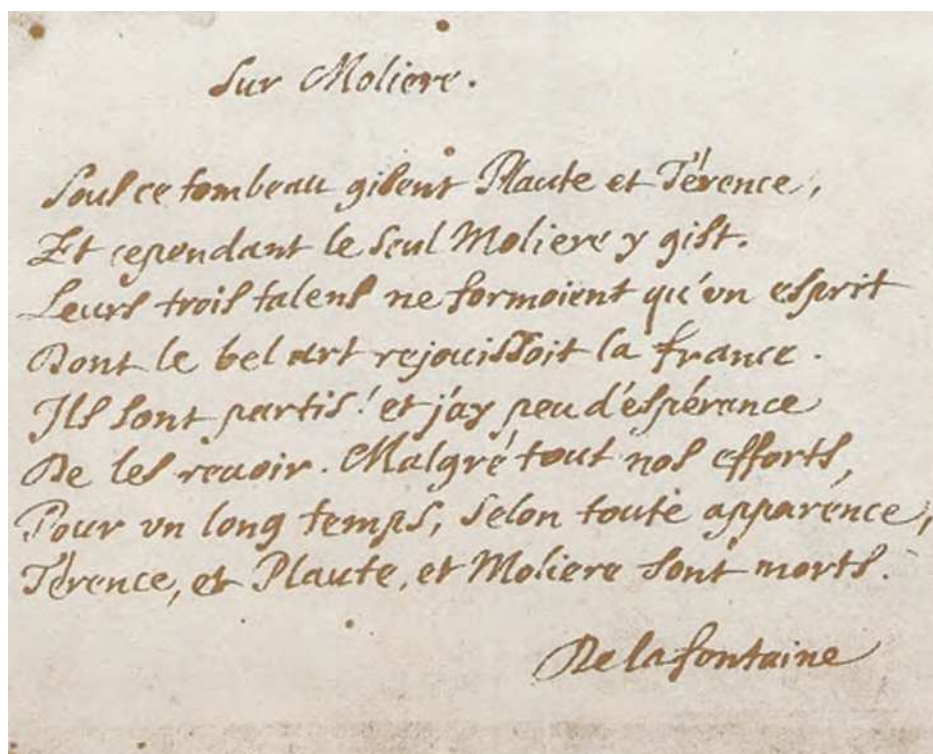 Sur Moliere.
Sous ce tombeau gisent Plaute et Térence,
Et cependant le seul Moliere y gist.
Leurs trois talens ne formoient qu'un esprit
Dont le bel art rejouissoit la france.
Ils sont partis! et j'ay peu d'éspérance
De les revoir. Malgré tout nos efforts,
Pour vn long temps, selon toute apparence,
Térence, et Plaute, et Moliere sont morts.
De la fontaine